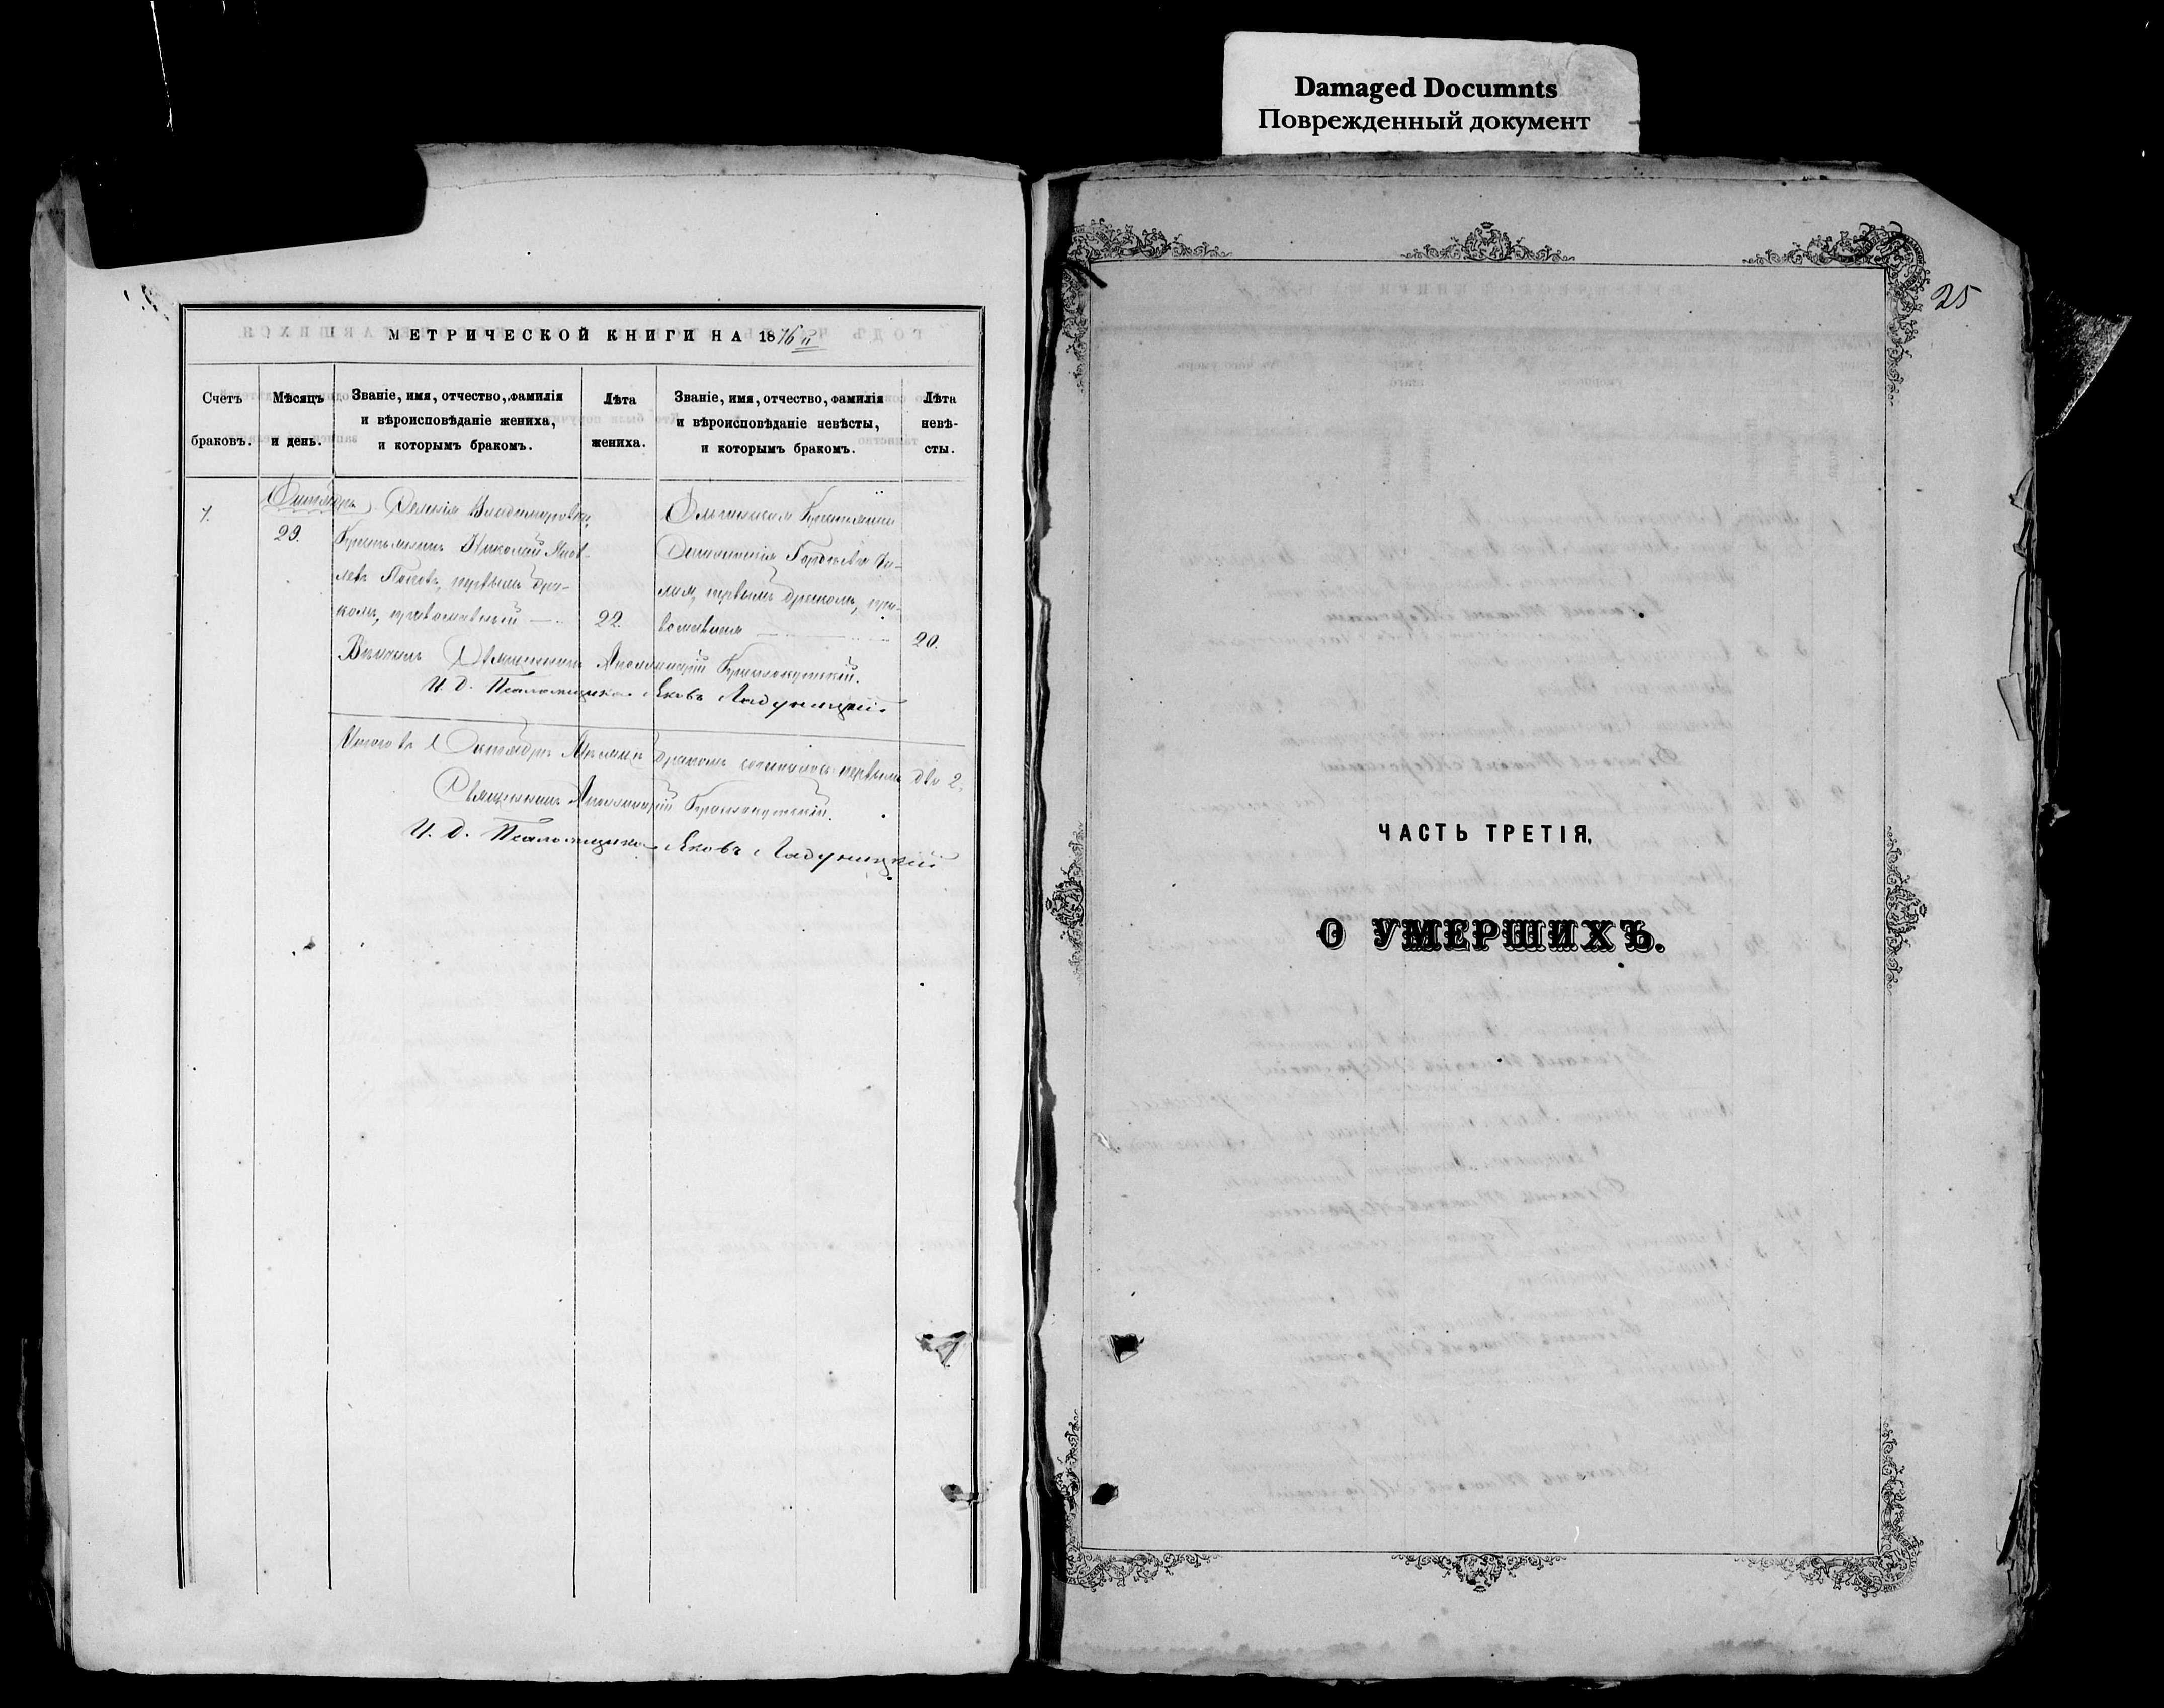 Damaged Documnts
Поврежденный документ
МЕТРИЧЕСКОЙ КНИГИ НА 1876й
Счетъ браковъ.
Мѣсяцъ и день.
Званіе, имя, отчество, фамилія
и вѣроисповѣданіе жениха,
и которымъ бракомъ.
Лѣта
жениха.
Званіе, имя, отчество, фамилія
и вѣроисповѣданіе невѣсты,
и которымъ бракомъ.
Лѣта
невѣ-
сты.
7.
Октябрь
29.
Селенія Владимировки
Крестьянинъ Николай Яков-
левъ Поповъ, первымъ бра-
комъ, православный
22.
Крестьянка
первымъ бракомъ, пра-
вославная
20.
Вѣнчалъ Священникъ Аполлинарій Краснокутскій.
И. д. Псаломщика Яковъ Ладуницкій
Итого въ Октябрѣ Мѣсяцѣ бракомъ сочеталось первымъ два 2.
Священникъ Аполлинарій Краснокутскій.
И. д. Псаломщика Яковъ Ладуницкій
25
ЧАСТЬ ТРЕТІЯ,
О УМЕРШИХЪ.